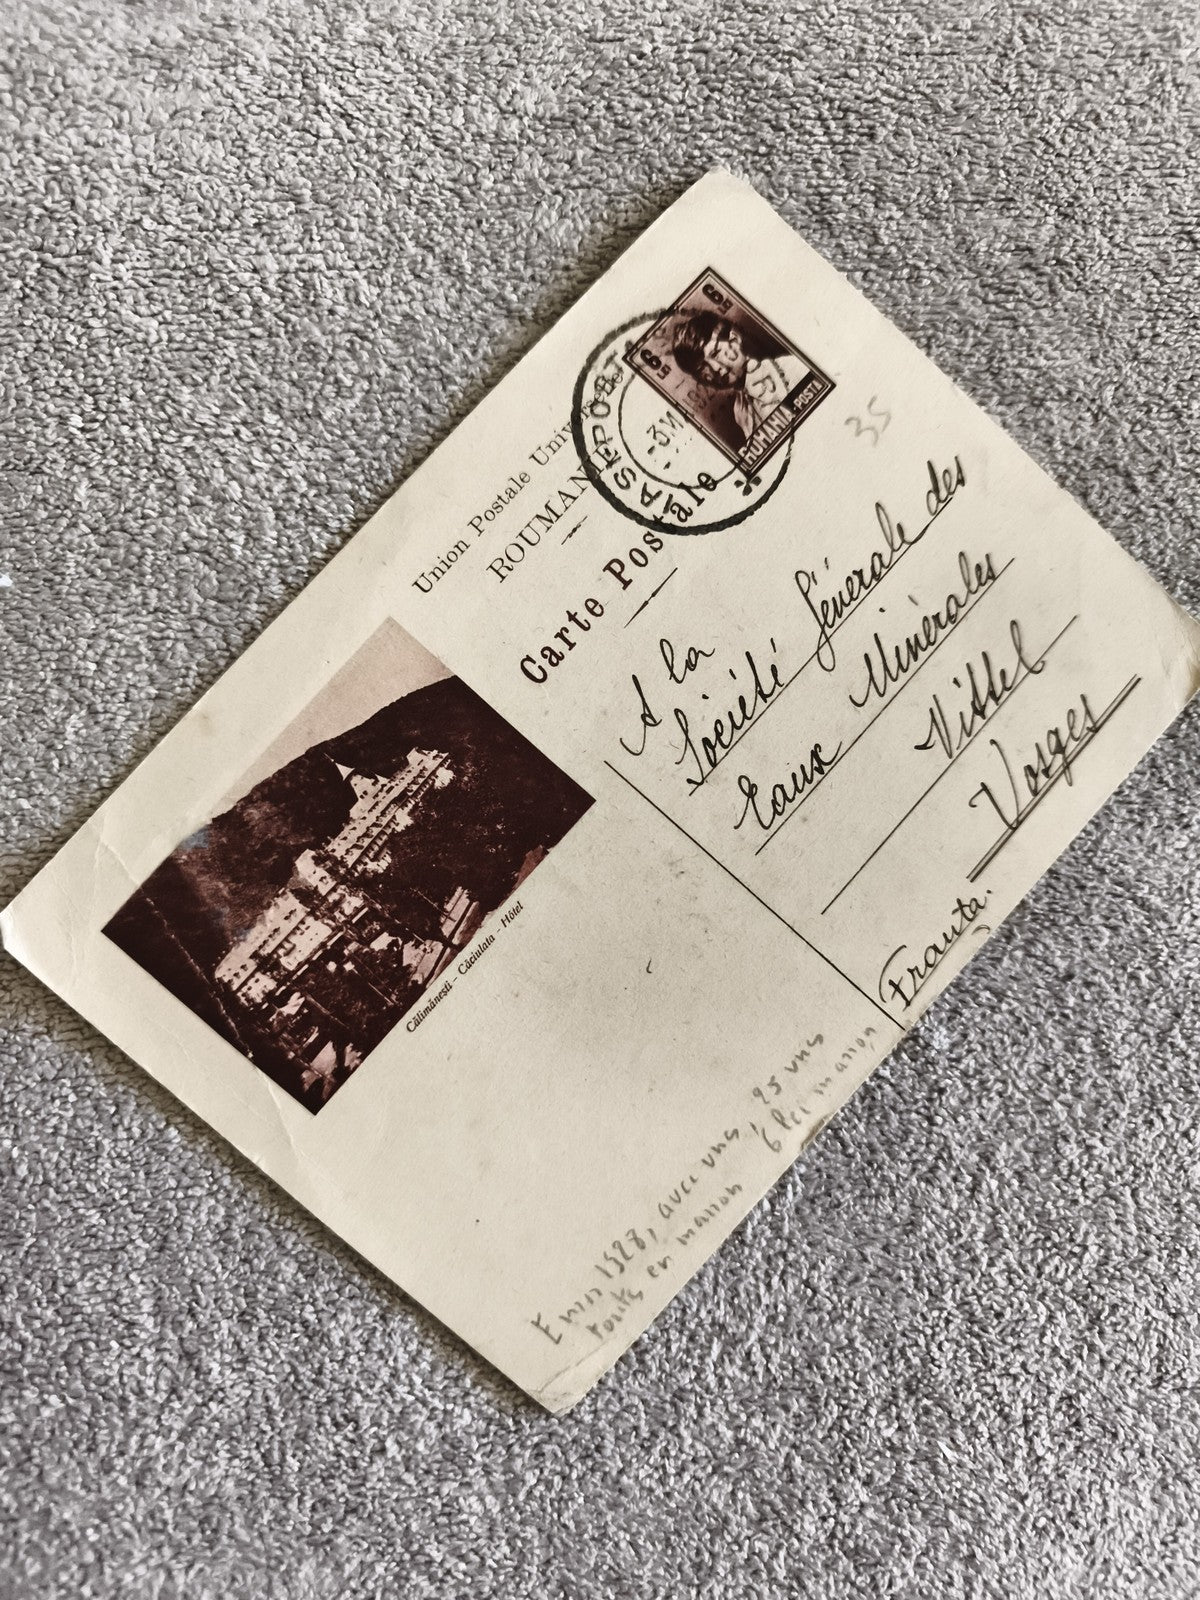 Union Postale Universelle
ROUMAN
Carte Postale
6 L
6 L
ROMANIA POSTA
IASI PORT
-3 VI
35
A la
Société Générale des
Eaux Minérales
Vittel
Vosges
Franța.
Călimănești - Căciulata - Hôtel
1928, avec vues, 25 vues
en marron 6 lei marron